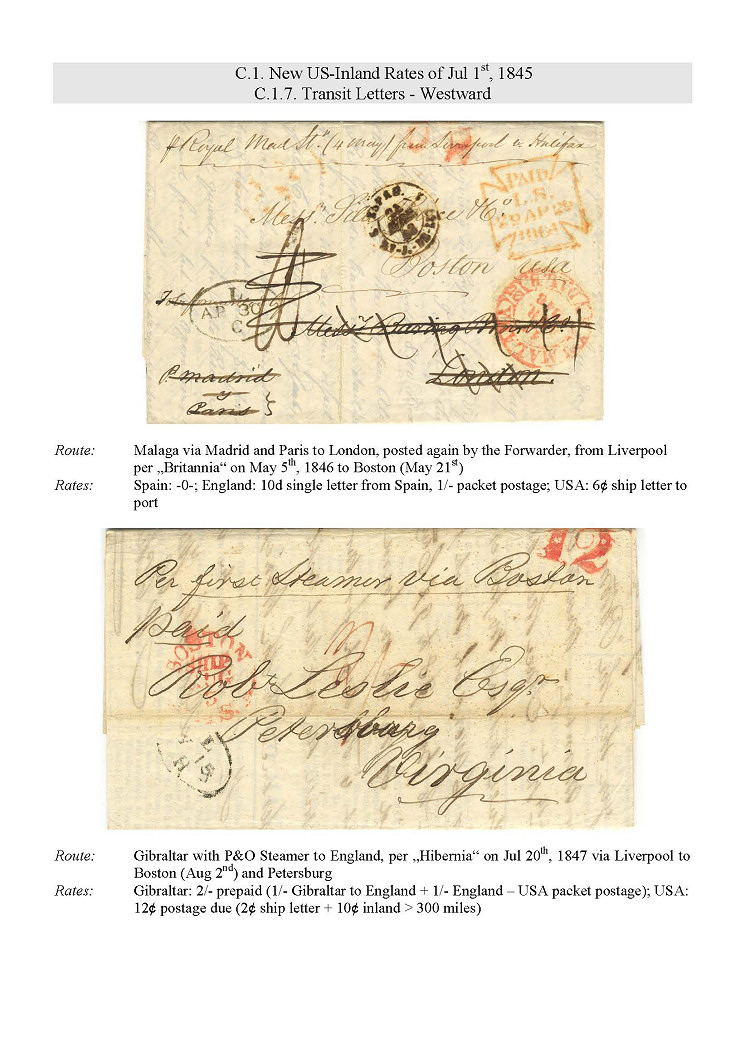 C.1. New US-Inland Rates of Jul 1st, 1845
C.1.7. Transit Letters - Westward
Royal Mail St. (4 May) from Liverpool via Halifax
PAID
L.S.
29 AP 29
Boston USA
L
AP 30
C
London.
P. Madrid
y
Paris
Route: Malaga via Madrid and Paris to London, posted again by the Forwarder, from Liverpool
per „Britannia“ on May 5th, 1846 to Boston (May 21st)
Rates: Spain: -0-; England: 10d single letter from Spain, 1/- packet postage; USA: 6¢ ship letter to
port
12
Per first Steamer via Boston
paid
BOSTON
SHIP
Robt Leslie Esqr
Petersburg
Virginia
Route: Gibraltar with P&O Steamer to England, per „Hibernia“ on Jul 20th, 1847 via Liverpool to
Boston (Aug 2nd) and Petersburg
Rates: Gibraltar: 2/- prepaid (1/- Gibraltar to England + 1/- England – USA packet postage); USA:
12¢ postage due (2¢ ship letter + 10¢ inland > 300 miles)